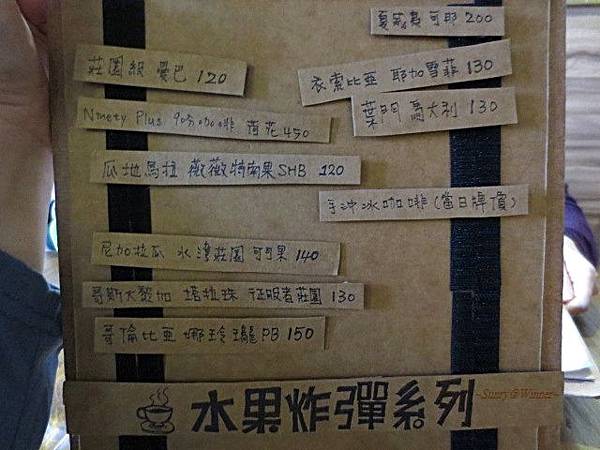 夏威夷可那 200
莊園級 曼巴 120
衣索比亞 耶加雪菲 130
Ninety Plus 90+咖啡 荷花 450
葉門 馬大利 130
瓜地馬拉 薇薇特南果SHB 120
手沖冰咖啡(當日牌價)
尼加拉瓜 水灣莊園 可可果 140
哥斯大黎加 塔拉珠 征服者莊園 130
哥倫比亞 娜玲瓏PB 150
水果炸彈系列
~Sunry@Winner~